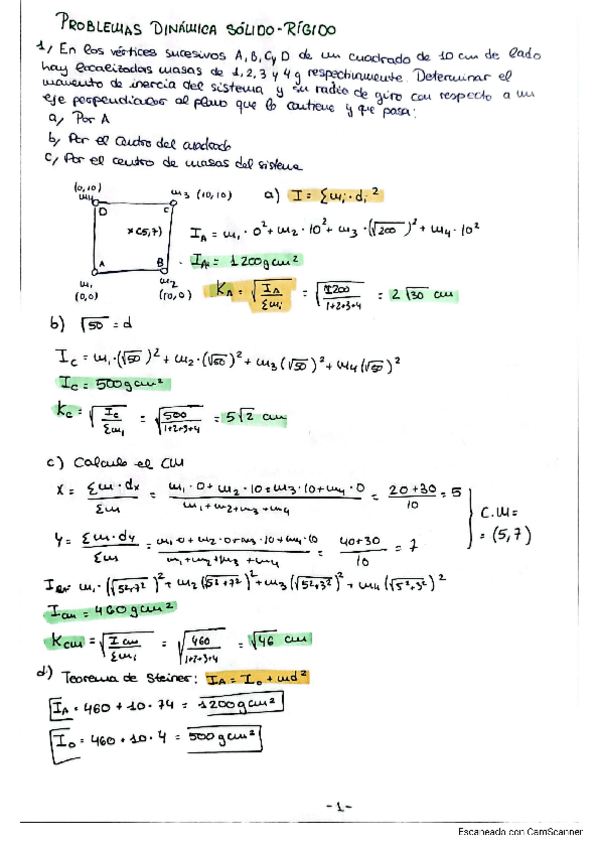 PROBLEMAS DINÁMICA SÓLIDO-RÍGIDO
1/ En los vértices sucesivos A, B, C, y D de un cuadrado de 10 cm de lado
hay localizadas masas de 1, 2, 3 y 4 g respectivamente. Determinar el
momento de inercia del sistema y su radio de giro con respecto a un
eje perpendicular al plano que lo contiene y que pasa:
a/ Por A
b/ Por el centro del cuadrado
c/ Por el centro de masas del sistema
(0,10) m4 m3 (10,10) a) I = Σmi · di²
D C
x(5,7) I_A = m1 · 0² + m2 · 10² + m3 · (√200)² + m4 · 10²
A B I_A = 1200 g cm²
m1 (0,0) m2 (10,0) K_A = √(I_A/Σmi) = √(1200/1+2+3+4) = 2√30 cm
b) √50 = d
I_C = m1 · (√50)² + m2 · (√50)² + m3 (√50)² + m4 (√50)²
I_C = 500 g cm²
K_C = √(I_C/Σmi) = √(500/1+2+3+4) = 5√2 cm
c) Calculo el CM
X = Σm · dx/Σm = m1 · 0 + m2 · 10 + m3 · 10 + m4 · 0/m1 + m2 + m3 + m4 = 20 + 30/10 = 5
C.M = (5,7)
Y = Σm · dy/Σm = m1 0 + m2 · 0 + m3 · 10 + m4 · 10/m1 + m2 + m3 + m4 = 40 + 30/10 = 7
m1 · (√5²+7²)² + m2 (√5²+7²)² + m3 (√5²+3²)² + m4 (√5²+3²)²
I_CM = 460 g cm²
K_CM = √(I_CM/Σmi) = √(460/1+2+3+4) = √46 cm
d) Teorema de Steiner: I_A = I_0 + md²
I_A = 460 + 10 · 74 = 1200 g cm²
I_0 = 460 + 10 · 4 = 500 g cm²
-1-
Escaneado con CamScanner